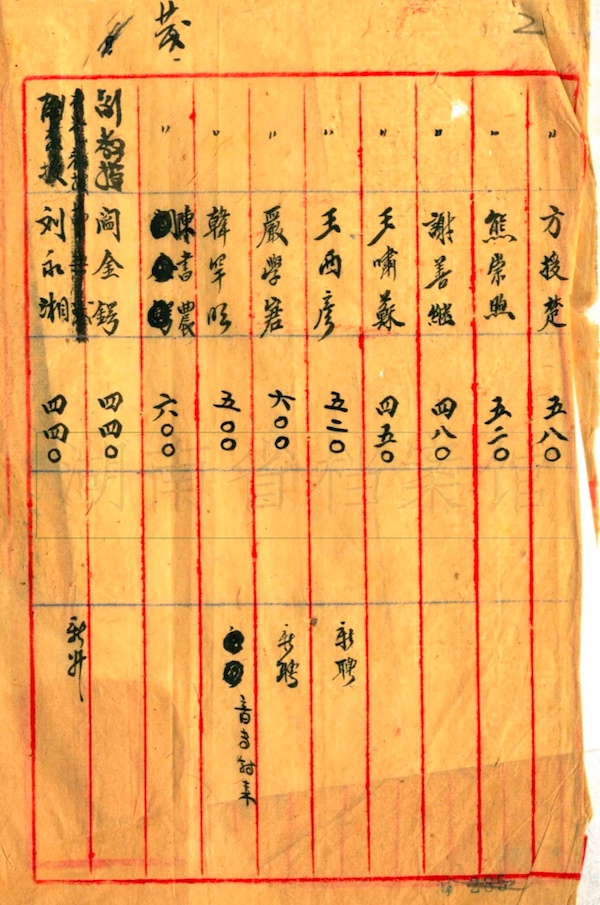 2
〃 方授楚 五八〇
〃 熊崇煦 五二〇
〃 謝善继 四八〇
〃 王嘯蘇 四五〇
〃 王西彦 五二〇 新聘
〃 嚴學宭 六〇〇 新聘
〃 韓罕明 五〇〇
〃 陳書農 六〇〇
副教授 阎金锷 四四〇
刘永湘 四四〇 新升
湖南省档案馆